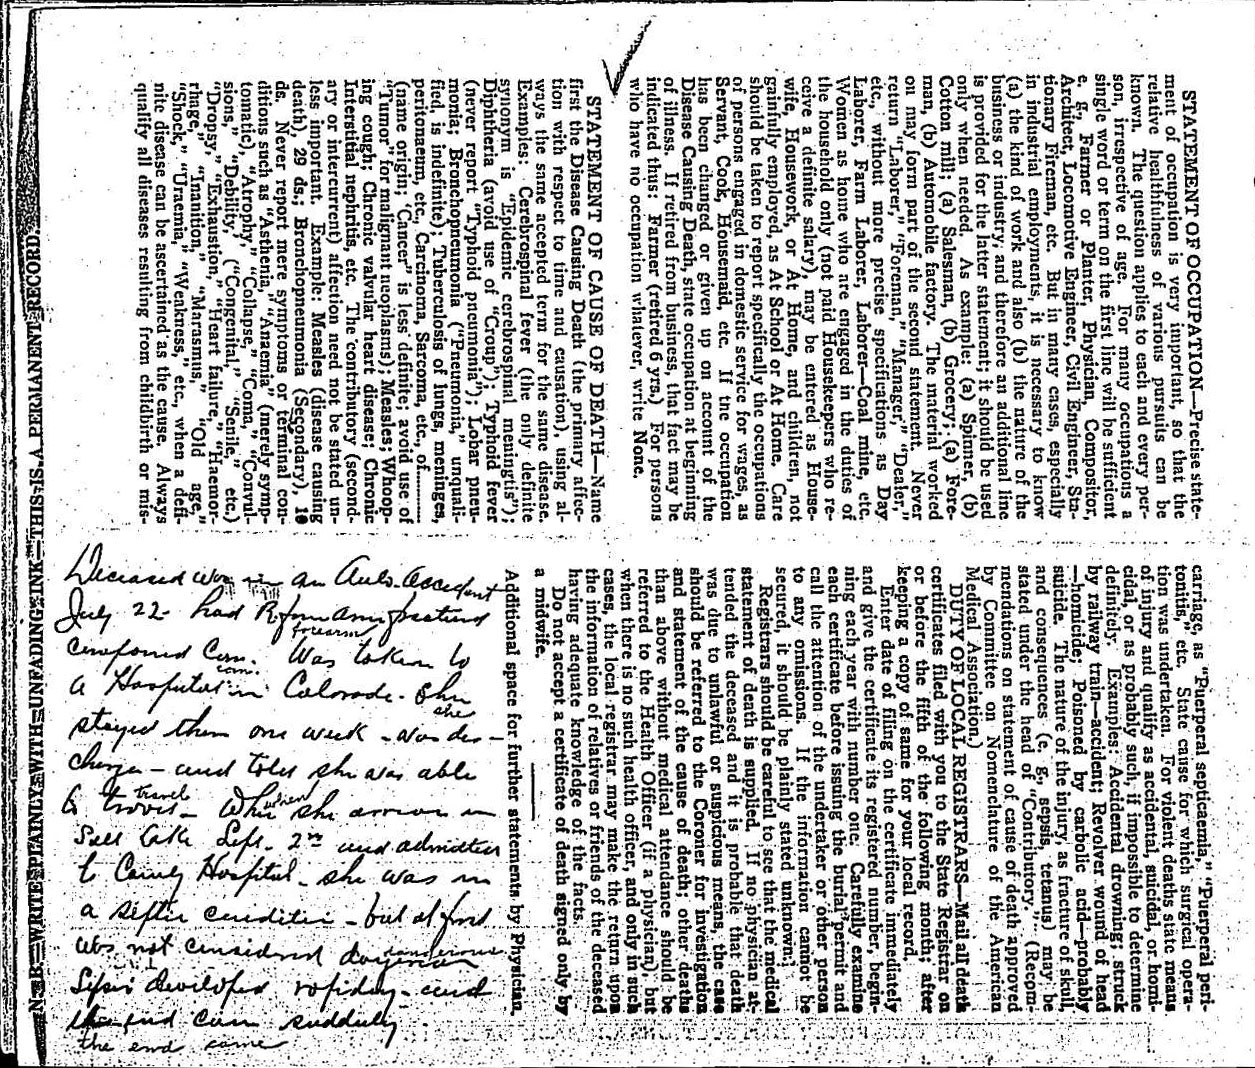 STATEMENT OF OCCUPATION—Precise state-
ment of occupation is very important, so that the
relative healthfulness of various pursuits can be
known. The question applies to each and every per-
son, irrespective of age. For many occupations a
single word or term on the first line will be sufficient
e. g., Farmer or Planter, Physician, Compositor,
Architect, Locomotive Engineer, Civil Engineer, Sta-
tionary Fireman, etc. But in many cases, especially
in industrial employments, it is necessary to know
(a) the kind of work and also (b) the nature of the
business or industry, and therefore an additional line
is provided for the latter statement; it should be used
only when needed. As example: (a) Spinner, (b)
Cotton mill; (a) Salesman, (b) Grocery; (a) Fore-
man, (b) Automobile factory. The material worked
on may form part of the second statement. Never
return "Laborer," "Foreman," "Manager," "Dealer,"
etc., without more precise specifications as Day
Laborer, Farm Laborer, Laborer—Coal mine, etc.
Women as home who are engaged in the duties of
the household only (not paid Housekeepers who re-
ceive a definite salary), may be entered as House-
wife, Housework, or At Home, and children, not
gainfully employed, as At School or At Home. Care
should be taken to report specifically the occupations
of persons engaged in domestic service for wages, as
Servant, Cook, Housemaid, etc. If the occupation
has been changed or given up on account of the
Disease Causing Death, state occupation at beginning
of illness. If retired from business, that fact may be
indicated thus: Farmer (retired 6 yrs.) For persons
who have no occupation whatever, write None.
STATEMENT OF CAUSE OF DEATH—Name
first the Disease Causing Death (the primary affec-
tion with respect to time and causation), using al-
ways the same accepted term for the same disease.
Examples: Cerebrospinal fever (the only definite
synonym is "Epidemic cerebrospinal meningtis");
Diphtheria (avoid use of "Croup"); Typhoid fever
(never report "Typhoid pneumonia"); Lobar pneu-
monia; Bronchopneumonia ("Pneumonia," unquali-
fied, is indefinite); Tuberculosis of lungs, meninges,
peritonaeum, etc., Carcinoma, Sarcoma, etc., of........
(name origin; "Cancer" is less definite; avoid use of
"Tumor" for malignant neoplasms); Measles; Whoop-
ing cough; Chronic valvular heart disease; Chronic
Interstitial nephritis, etc. The contributory (second-
ary or intercurrent) affection need not be stated un-
less important. Example: Measles (disease causing
death), 29 ds.; Bronchopneumonia (Secondary), 10
ds. Never report mere symptoms or terminal con-
ditions such as "Asthenia," "Anaemia" (merely symp-
tomatic), "Atrophy," "Collapse," "Coma," "Convul-
sions," "Debility," ("Congenital," "Senile," etc.)
"Dropsy," "Exhaustion," "Heart failure," "Haemor-
rhage," "Inanition," "Marasmus," "Old age,"
"Shock," "Uraemia," "Weakness," etc., when a defi-
nite disease can be ascertained as the cause. Always
qualify all diseases resulting from childbirth or mis-
carriage, as "Puerperal septicaemia," "Puerperal peri-
tonitis," etc. State cause for which surgical opera-
tion was undertaken. For violent deaths state means
of injury and qualify as accidental, suicidal, or homi-
cidal, or as probably such, if impossible to determine
definitely. Examples: Accidental drowning; struck
by railway train—accident; Revolver wound of head
—homicide; Poisoned by carbolic acid—probably
suicide. The nature of the injury, as fracture of skull,
and consequences (e. g., sepsis, tetanus) may be
stated under the head of "Contributory." (Recom-
mendations on statement of cause of death approved
by Committee on Nomenclature of the American
Medical Association.)
DUTY OF LOCAL REGISTRARS—Mail all death
certificates filed with you to the State Registrar on
or before the fifth of the following month; after
keeping a copy of same for your local record.
Enter date of filing on the certificate immediately
and give the certificate its registered number, begin-
ning each year with number one. Carefully examine
each certificate before issuing the burial permit and
call the attention of the undertaker or other person
to any omissions. If the information cannot be
secured, it should be plainly stated unknown.
Registrars should be careful to see that the medical
statement of death is supplied. If no physician at-
tended the deceased and it is probable that death
was due to unlawful or suspicious means, the case
should be referred to the Coroner for investigation
and statement of the cause of death; other deaths
than above without medical attendance should be
referred to the Health Officer (if a physician), but
when there is no such health officer, and only in such
cases, the local registrar may make the return upon
the information of relatives or friends of the deceased
having adequate knowledge of the facts.
Do not accept a certificate of death signed only by
a midwife.
Additional space for further statements by Physician.
Deceased was in an Auto-accident
July 22 - had R forearm fractured
forearm
compound Com. Was taken to
com.
a Hospital in Colorado - She
she
stayed there one week - was dis-
charge - and told she was able
to travel - When she arrives in
travel when
Salt Lake Sept. 2nd and admitted
to County Hospital - she was in
a septic condition - but at first
was not considered dangerous
dangerous
Sepsis developed rapidly - and
the end came suddenly
the end came
N. B.—WRITE PLAINLY WITH UNFADING INK—THIS IS A PERMANENT RECORD.